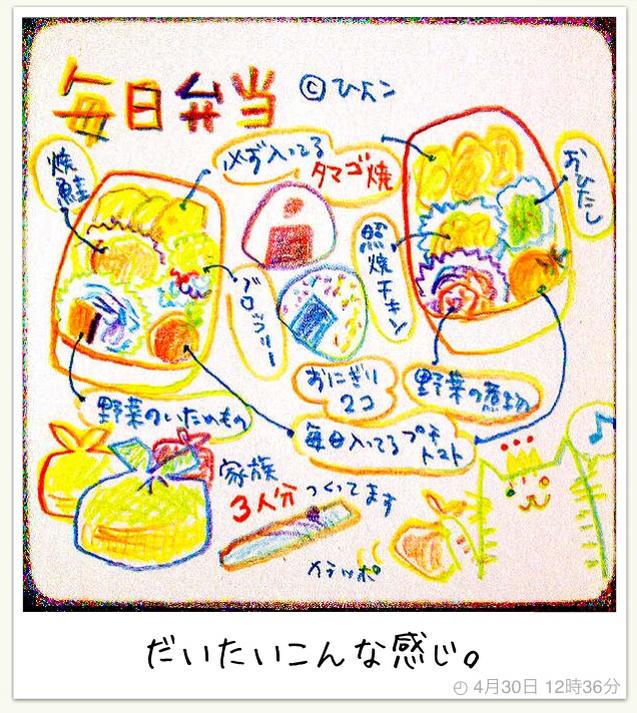 毎日弁当
© ひよこ
焼鮭
必ず入ってる
タマゴ焼
おひたし
照焼チキン
ブロッコリー
おにぎり
2コ
野菜の煮物
野菜のいためもの
毎日入ってるプチ
トマト
家族
3人分 つくってます
だいたいこんな感じ。
4月30日 12時36分